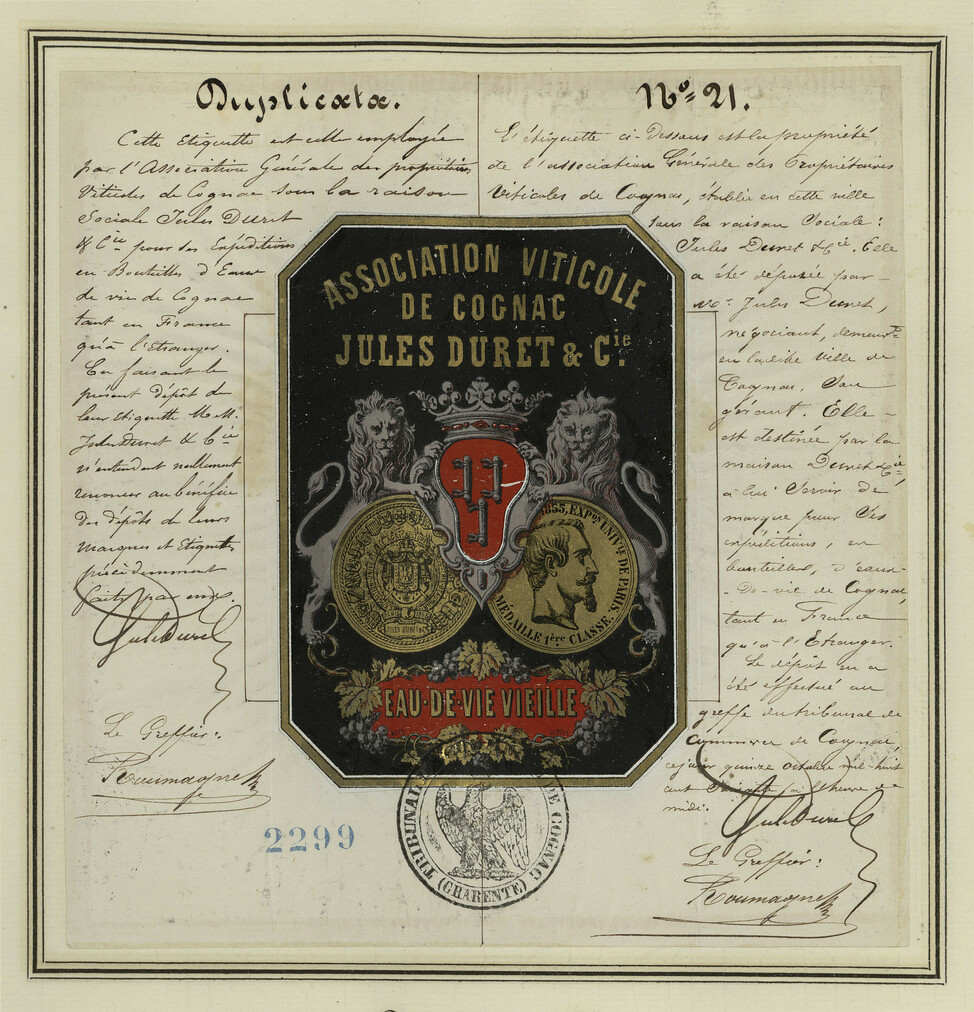 Duplicata.
Cette Etiquette est celle employée
par l'Association Générale des propriétaires
Viticoles de Cognac sous la raison
Sociale Jules Duret
& Cie pour ses Expéditions
en Bouteilles d'Eaux
de vie de Cognac
tant en France
qu'à l'Etranger.
En faisant le
présent dépôt de
leur Etiquette M.M.
Jules Duret & Cie
n'entendent nullement
renoncer au bénéfice
des dépôts de leurs
marques et Etiquettes
précédemment
faits par eux.
Jules Duret
Le Greffier:
Roumagne
2299
No 21.
L'étiquette ci-dessous est la propriété
de l'association Générale des Propriétaires
Viticoles de Cognac, établie en cette ville
sous la raison Sociale:
Jules Duret & Cie. Elle
a été déposée par
Mr. Jules Duret,
négociant, demeurt
en ladite ville de
Cognac, Son
gérant. Elle
est destinée par la
maison Duret & Cie,
à lui Servir de
marque pour Ses
expéditions, en
bouteilles, d'eaux-
-de-vie de Cognac,
tant en France
qu'à l'Etranger.
Le dépôt en a
été effectué au
greffe du tribunal de
commerce de Cognac,
ce jour quinze octobre mil-huit
cent Soixante, à l'heure de
midi.
Jules Duret
Le Greffier:
Roumagne
ASSOCIATION VITICOLE
DE COGNAC
JULES DURET & Cie.
1855, EXPon UNIVle DE PARIS.
MÉDAILLE 1ère CLASSE.
JULES DURET & Cie
EAU-DE-VIE VIEILLE
TRIBUNAL DE COGNAC
(CHARENTE)